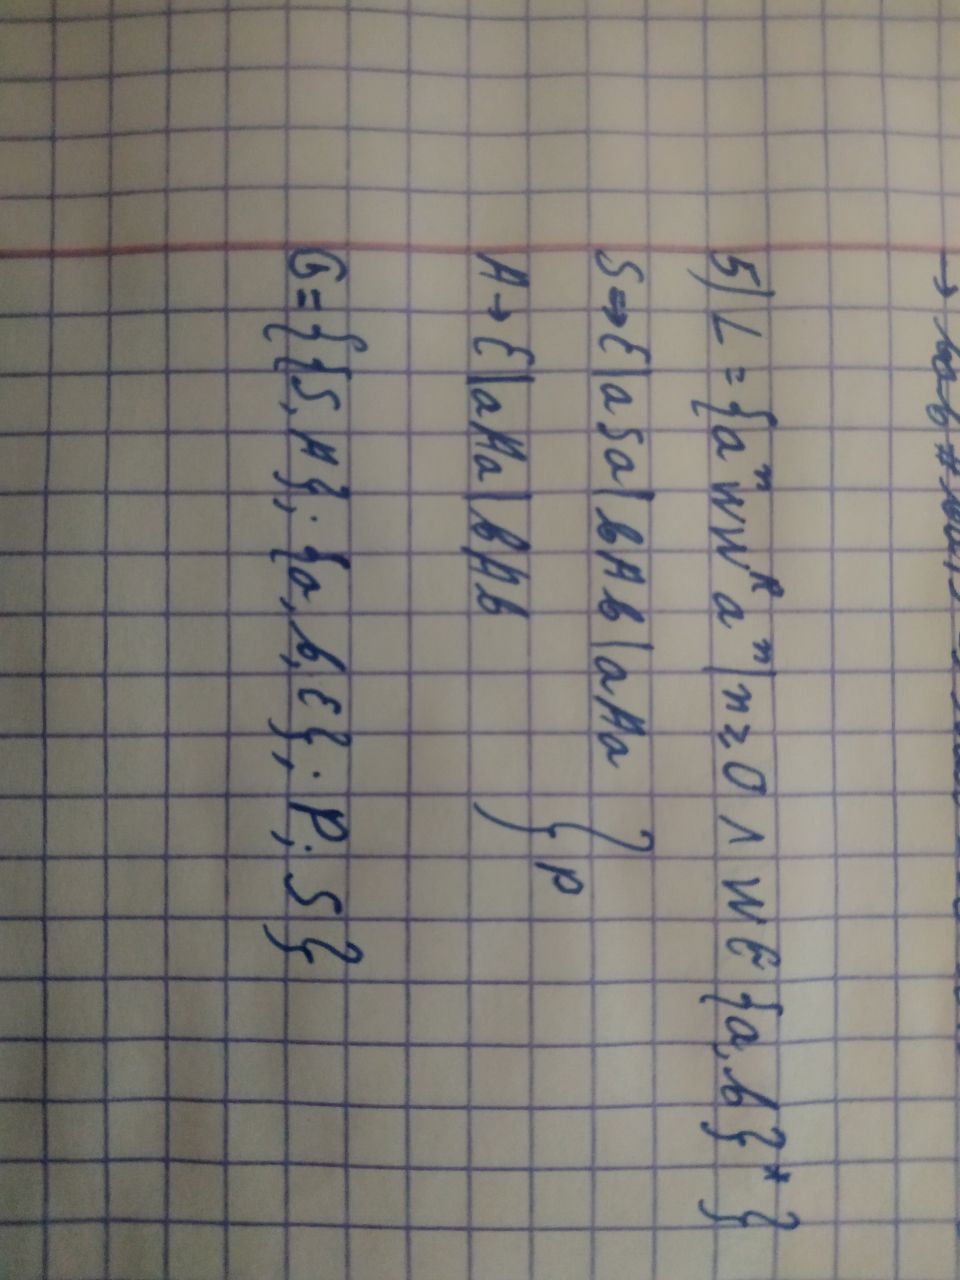 5) L = {aⁿww^R aⁿ | n ≥ 0 ∧ w ∈ {a, b}*}
S → ε | aSa | bAb | aAa
} P
A → ε | aAa | bAb
G = {{S, A}; {a, b, ε}; P; S}